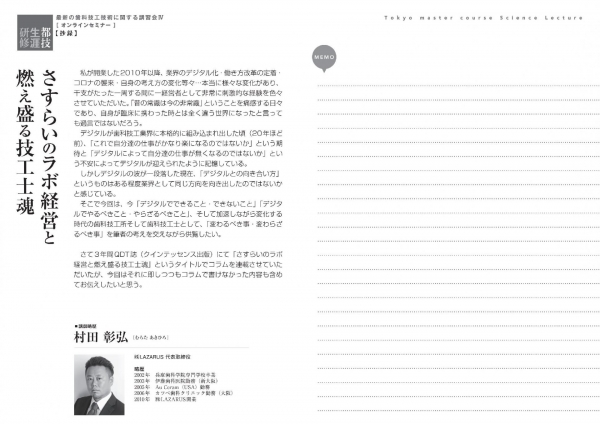 都技
生涯
研修
最新の歯科技工技術に関する講習会Ⅳ
[ オンラインセミナー ]
【抄録】
さすらいのラボ経営と
燃え盛る技工士魂
私が開業した2010年以降、業界のデジタル化・働き方改革の定着・
コロナの襲来・自身の考え方の変化等々…本当に様々な変化があり、
干支がたった一周する間に一経営者として非常に刺激的な経験を色々
させていただいた。「昔の常識は今の非常識」ということを痛感する日々
であり、自身が臨床に携わった時とは全く違う世界になったと言って
も過言ではないだろう。
デジタルが歯科技工業界に本格的に組み込まれ出した頃（20年ほど
前）、「これで自分達の仕事がかなり楽になるのではないか」という期
待と「デジタルによって自分達の仕事が無くなるのではないか」とい
う不安によってデジタルが迎えられたように記憶している。
しかしデジタルの波が一段落した現在、「デジタルとの向き合い方」
というものはある程度業界として同じ方向を向き出したのではないか
と感じている。
そこで今回は、今「デジタルでできること・できないこと」「デジタ
ルでやるべきこと・やらざるべきこと」、そして加速しながら変化する
時代の歯科技工所そして歯科技工士として、「変わるべき事・変わらざ
るべき事」を筆者の考えを交えながら供覧したい。
さて3年間QDT誌（クインテッセンス出版）にて「さすらいのラボ
経営と燃え盛る技工士魂」というタイトルでコラムを連載させていた
だいたが、今回はそれに即しつつもコラムで書けなかった内容も含め
てお伝えしたいと思う。
■講師略歴
村田 彰弘 [むらた あきひろ]
㈱LAZARUS 代表取締役
略歴
2002年 兵庫歯科学院専門学校卒業
2003年 伊藤歯科医院勤務（南大阪）
2005年 Au Ceram（USA）勤務
2006年 カツベ歯科クリニック勤務（大阪）
2010年 ㈱LAZARUS開業
Tokyo master course Science Lecture
MEMO